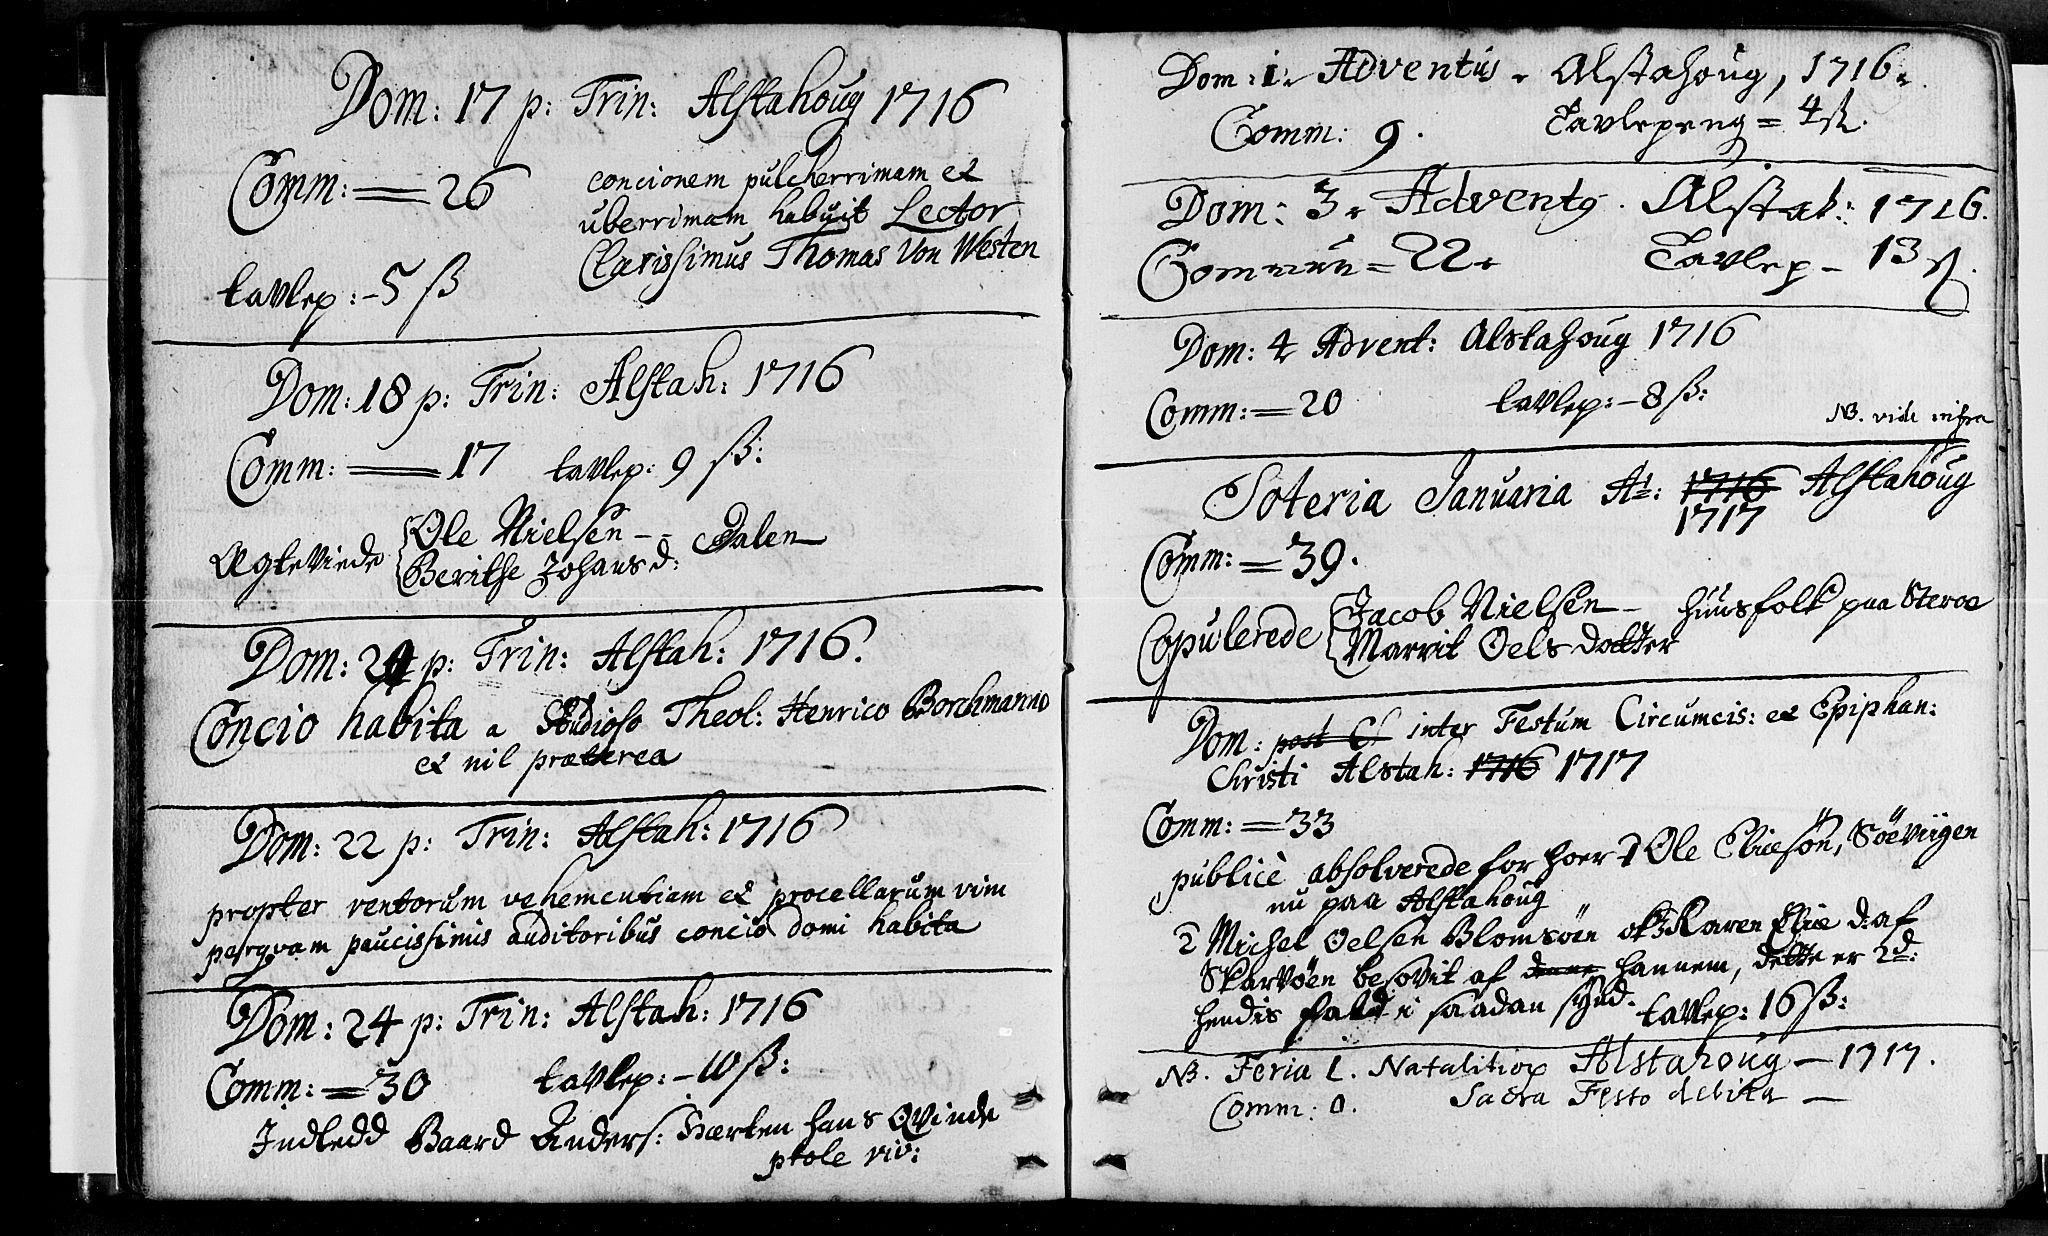 Dom: 17 p: Trin: Alstahoug 1716
Comm: = 26
concionem pulcherrimam et
uberrimam habuit Lector
Clarissimus Thomas Von Westen
tavlep: - 5 ß
Dom: 18 p: Trin: Alstah: 1716
Comm: = 17 tavlep: 9 ß:
Ægteviede
Ole Nielsen - - Dalen
Berithe Johansd:
Dom: 20 p: Trin: Alstah: 1716.
Concio habita a Studioso Theol: Henrico Borchmanno
et nil præterea
Dom: 22 p: Trin: Alstah: 1716
propter ventorum vehementiam et procellarum vim
perqvam paucissimis auditoribus concio domi habita
Dom: 24 p: Trin: Alstah: 1716
Comm: = 30 tavlep: - 10 ß:
Indledd Baard Anders: hans Qvinde
Dom: 1. Adventus. Alstahoug, 1716.
Comm: 9. Tavlepeng = 4 ß.
Dom: 3. Advent9. Alstah: 1716.
Commun = 22. Tavlep - 13 ß.
Dom: 4 Advent: Alstahoug 1716
Comm: = 20 tavlep: - 8 ß:
NB. vide infra
Soteria Januaria A̲: 1716 Alstahoug
1717
Comm: = 39.
Copulerede
Jacob Nielsen - huusfolk paa Steroe
Marrit Oels dotter
Dom: post C inter Festum Circumcis: et Epiphan:
Christi Alstah: 1716 1717
Comm: = 33
publicè absolverede for hoer 1 Ole Elüesön, Söeviigen
nu paa Alstahoug
2 Michel Oelsen Blomsöen ok 3 Karen Elie d: af
Skarvöen besovit af denne hannem, dette er 2d:
hendis fald i saadan synd. tavlep: 16 ß:
NB. Feria 1. Natalitior Alstahoug - 1717.
Comm: 0. Sacra Festo debita -